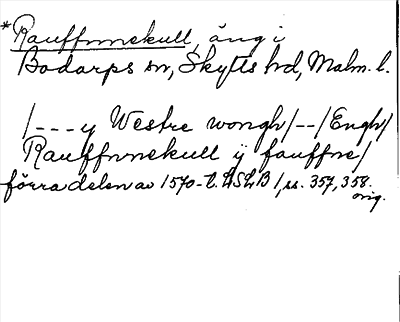 *Rauffnnekull, äng i
Bodarps sn, Skytts hd, Malm. l.
/---y Westre wongh/--/Engh/
Rauffnnekull ÿ fauffne/
förra delen av 1570-t. LSLB 1, ss. 357, 358.
orig.